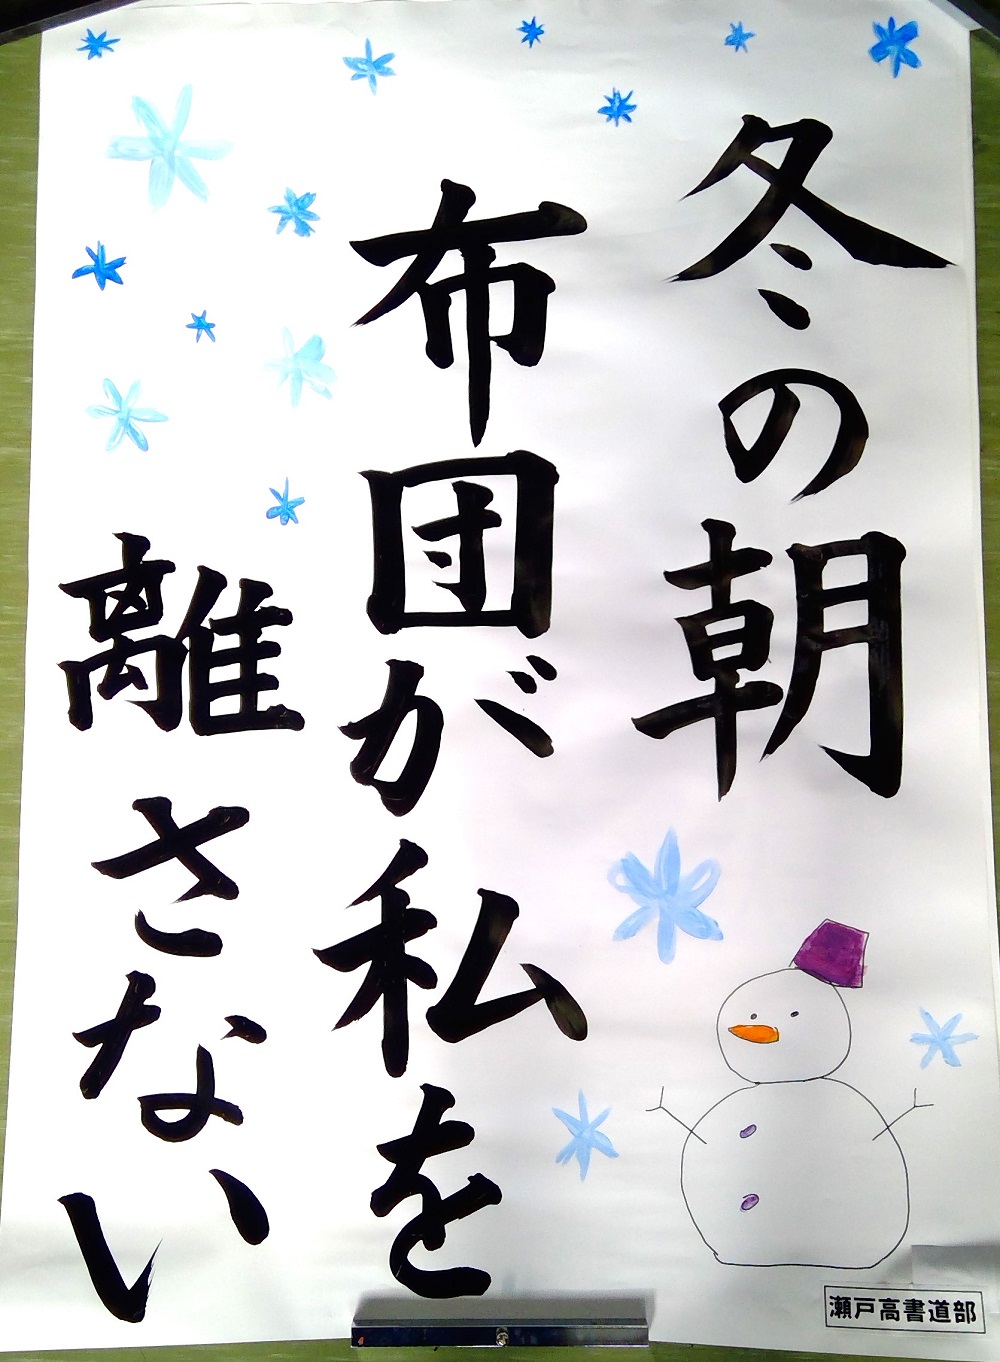 冬の朝
布団が私を
離さない
瀬戸高書道部